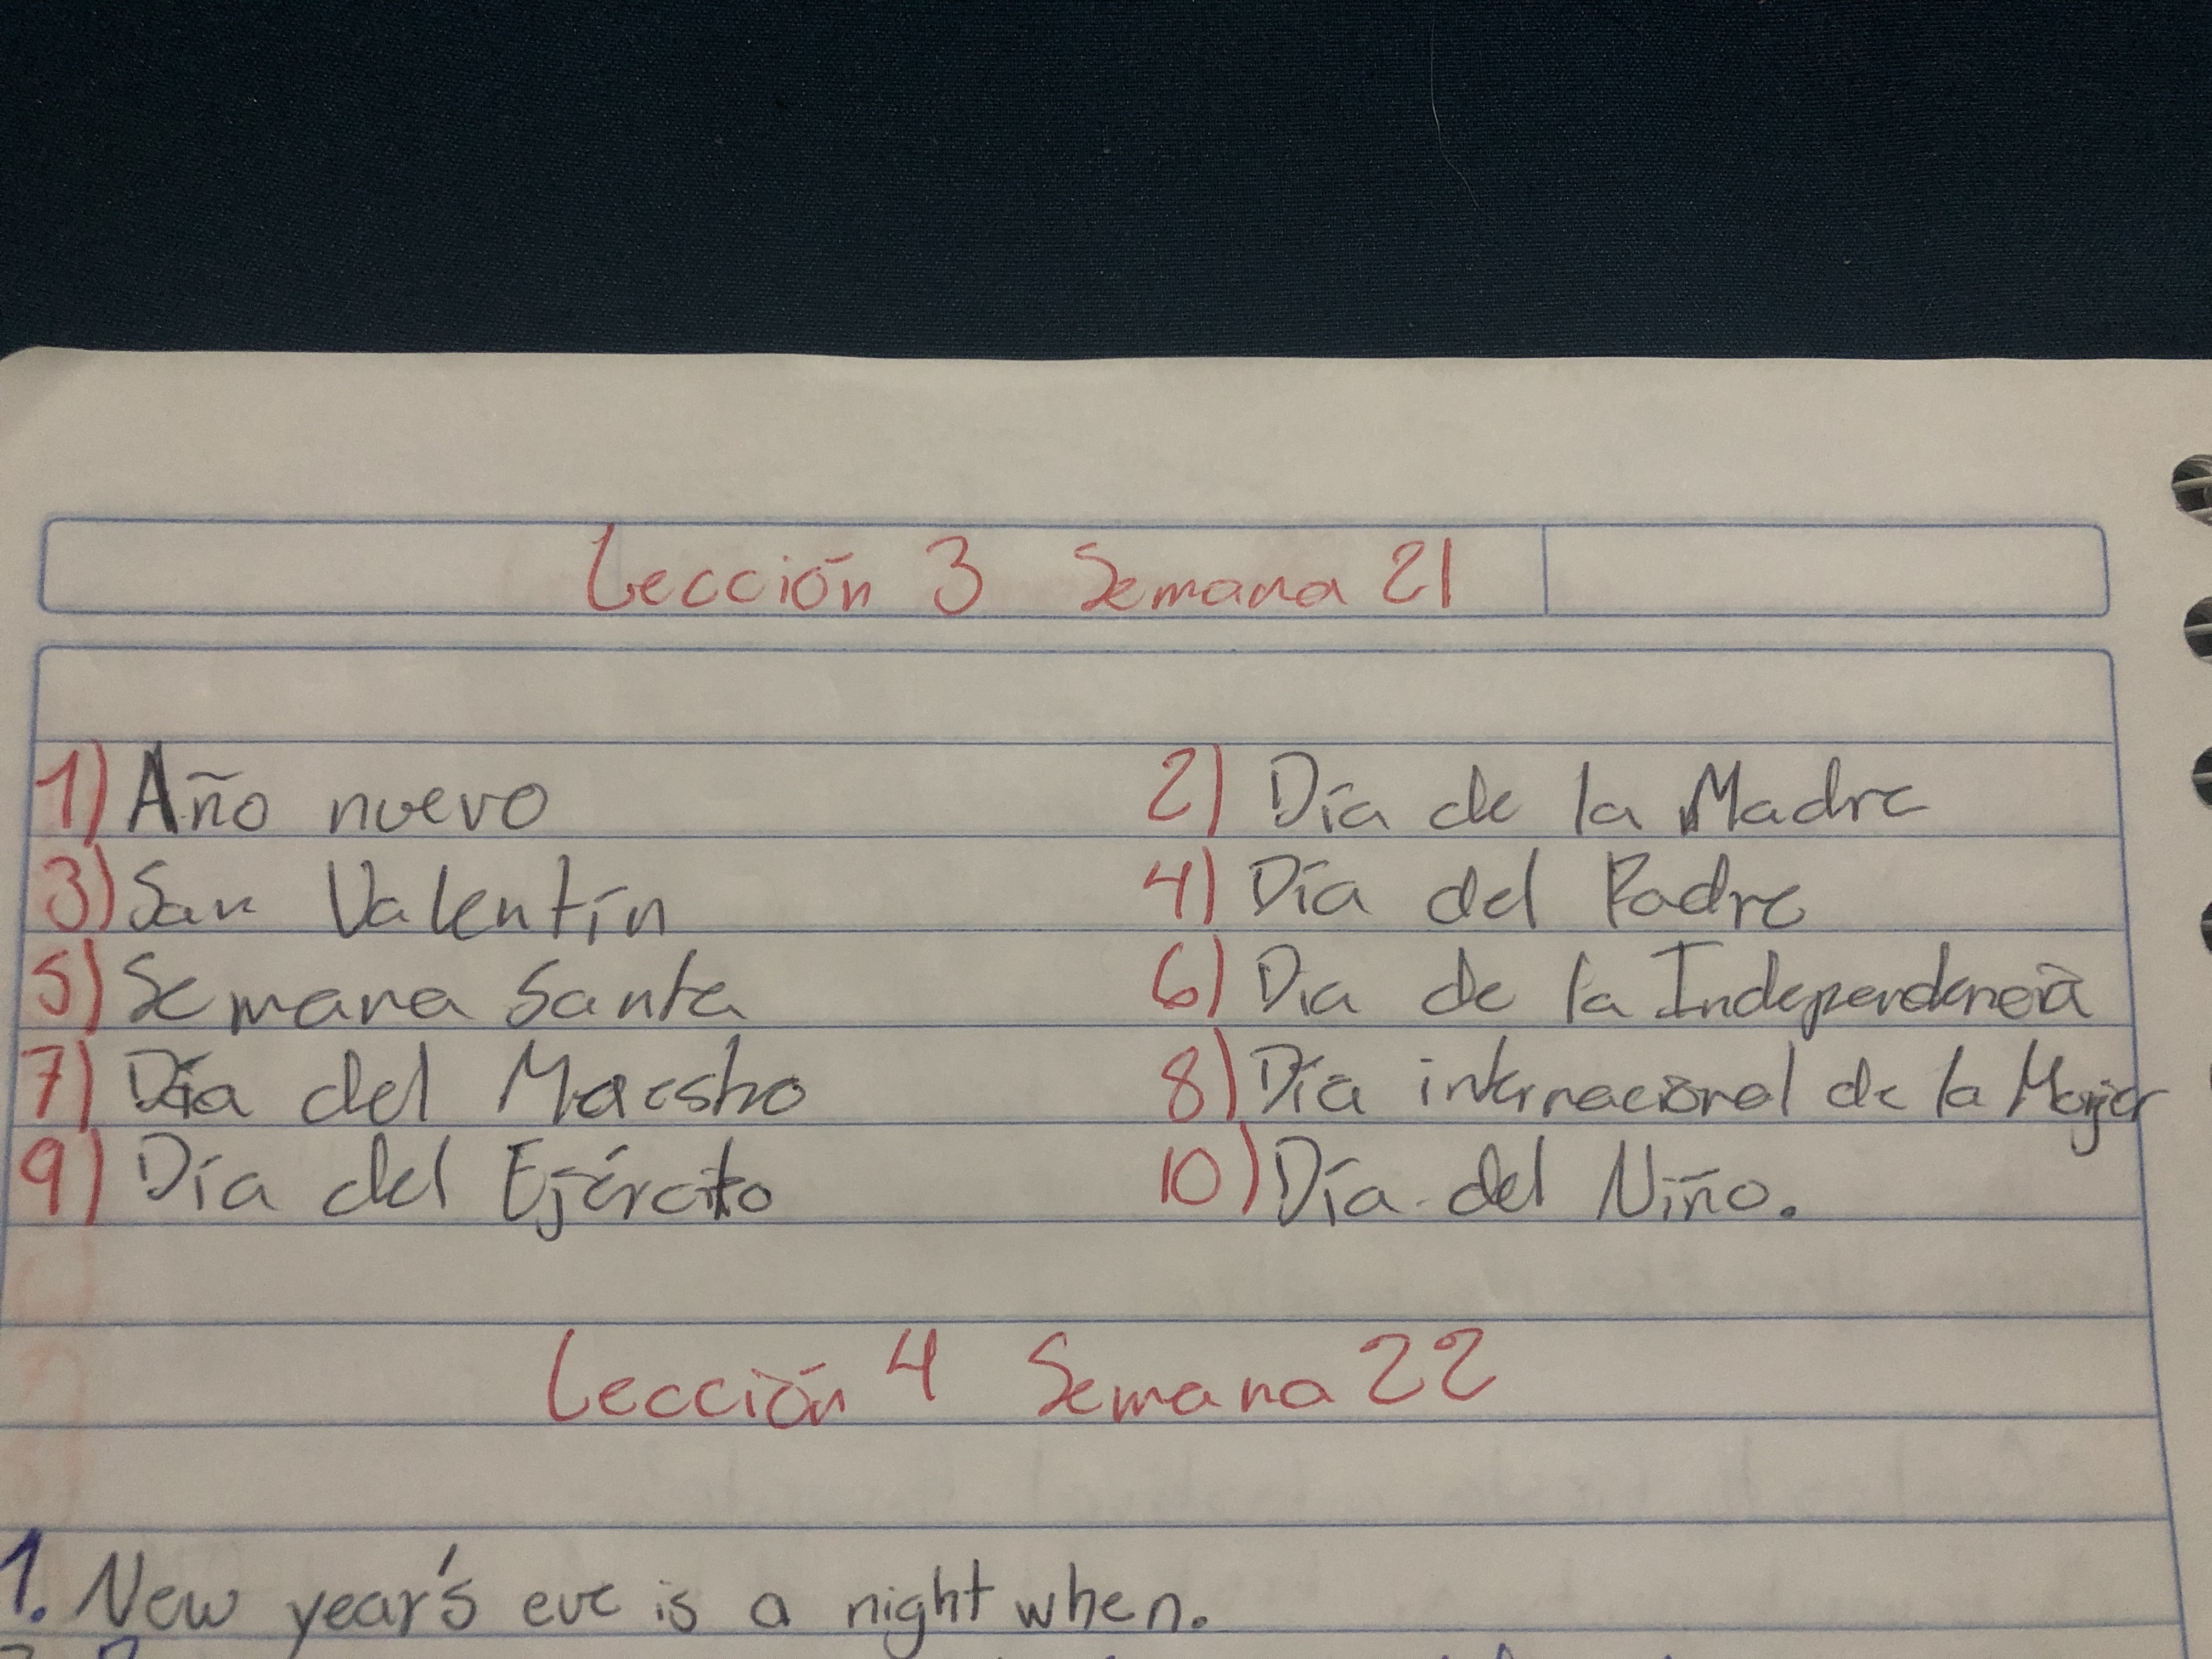 Lección 3 Semana 21
1) Año nuevo 2) Día de la Madre
3) San Valentín 4) Día del Padre
5) Semana Santa 6) Dia de la Independencia
7) Día del Maestro 8) Día internacional de la Mujer
9) Día del Ejército 10) Día del Niño.
Lección 4 Semana 22
1. New year's eve is a night when.